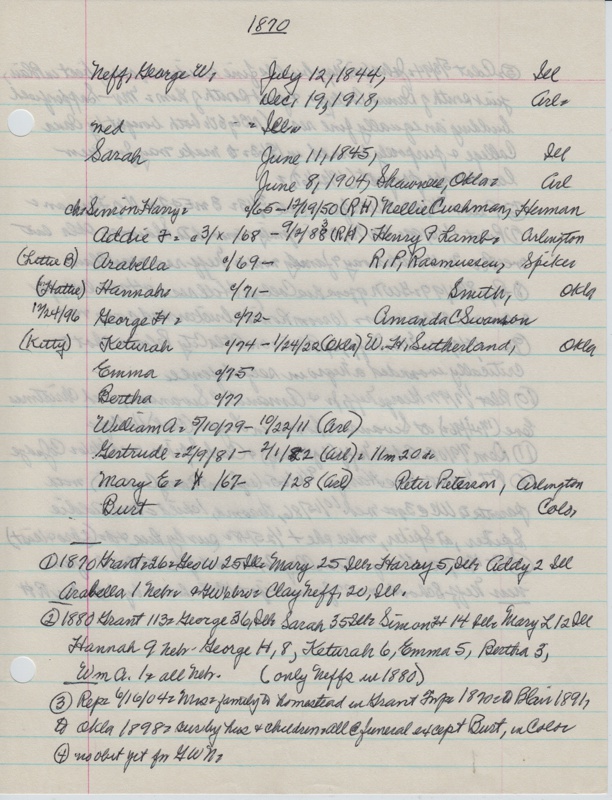 1870
Neff, George W. July 12, 1844, Ill
Dec. 19, 1918, Arl=
ned - = Ill=
Sarah June 11, 1845, Ill
June 8, 1904, Shawnee, Okla= Arl
ch: Simon Harry= 0/65 - 12/19/50 (RH) Nellie Cushman, Herman
Addie F= 3/x/68 - 9/2/83 (RH) Henry P. Lamb= Arlington
(Lottie B) Arabella 0/69 - R.P. Rasmussen, Spiker
(Hattie) Hannah= 0/71 - Smith, Okla
12/24/96 George H= 0/72 - Amanda C Swanson
(Kitty) Keturah 0/74 - 1/24/22 (Okla) W.H. Sutherland, Okla
Emma 0/75
Bertha 0/77
William A= 5/10/79 - 10/22/11 (Arl)
Gertrude = 2/9/81 - 2/1/82 (Arl) = 11m 20d
Mary E = /67 - /28 (Arl) Peter Peterson, Arlington
Burt Colo,
① 1870 Grant=26= Geo W 25 Ill= Mary 25 Ill= Harry 5, Ill= Addy 2 Ill
Arabella 1 Nebr= Clay Neff, 20, Ill.
② 1880 Grant 113= George 36, Ill= Sarah 35 Ill= Simon H 14 Ill= Mary L 12 Ill
Hannah 9 Nebr- George H, 8, Katurah 6, Emma 5, Bertha 3,
Wm A. 1= all Nebr. (only Neffs in 1880)
③ Rep= 6/16/04= Mrs= family to homestead in Grant Twp= 1870= to Blair 1891,
to Okla 1898= surv by hus & children all @ funeral except Burt, in Color
④ no obit yet for GWN=